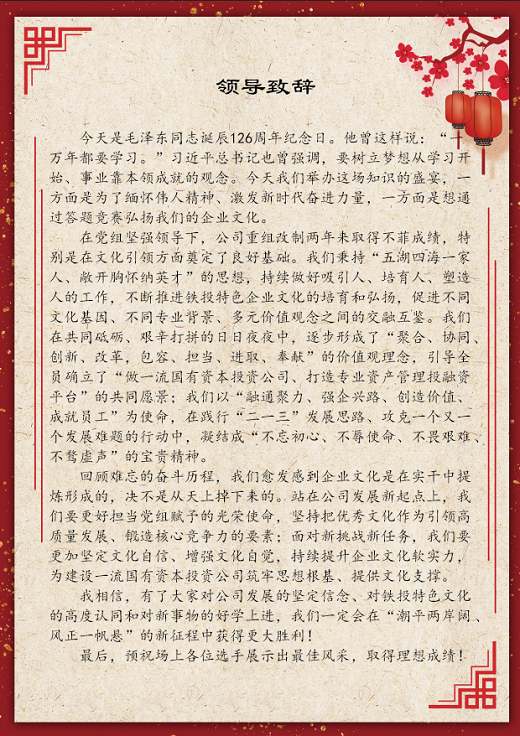 领导致辞
今天是毛泽东同志诞辰126周年纪念日。他曾这样说：“一
万年都要学习。”习近平总书记也曾强调，要树立梦想从学习开
始、事业靠本领成就的观念。今天我们举办这场知识的盛宴，一
方面是为了缅怀伟人精神、激发新时代奋进力量，一方面是想通
过答题竞赛弘扬我们的企业文化。
在党组坚强领导下，公司重组改制两年来取得不菲成绩，特
别是在文化引领方面奠定了良好基础。我们秉持“五湖四海一家
人、敞开胸怀纳英才”的思想，持续做好吸引人、培育人、塑造
人的工作，不断推进铁投特色企业文化的培育和弘扬，促进不同
文化基因、不同专业背景、多元价值观念之间的交融互鉴。我们
在共同砥砺、艰辛打拼的日日夜夜中，逐步形成了“聚合、协同、
创新、改革，包容、担当、进取、奉献”的价值观理念，引导全
员确立了“做一流国有资本投资公司、打造专业资产管理投融资
平台”的共同愿景；我们以“融通聚力、强企兴路、创造价值、
成就员工”为使命，在践行“二一三”发展思路、攻克一个又一
个发展难题的行动中，凝结成“不忘初心、不辱使命、不畏艰难、
不骛虚声”的宝贵精神。
回顾难忘的奋斗历程，我们愈发感到企业文化是在实干中提
炼形成的，决不是从天上掉下来的。站在公司发展新起点上，我
们要更好担当党组赋予的光荣使命，坚持把优秀文化作为引领高
质量发展、锻造核心竞争力的要素；面对新挑战新任务，我们要
更加坚定文化自信、增强文化自觉，持续提升企业文化软实力，
为建设一流国有资本投资公司筑牢思想根基、提供文化支撑。
我相信，有了大家对公司发展的坚定信念、对铁投特色文化
的高度认同和对新事物的好学上进，我们一定会在“潮平两岸阔、
风正一帆悬”的新征程中获得更大胜利！
最后，预祝场上各位选手展示出最佳风采，取得理想成绩！